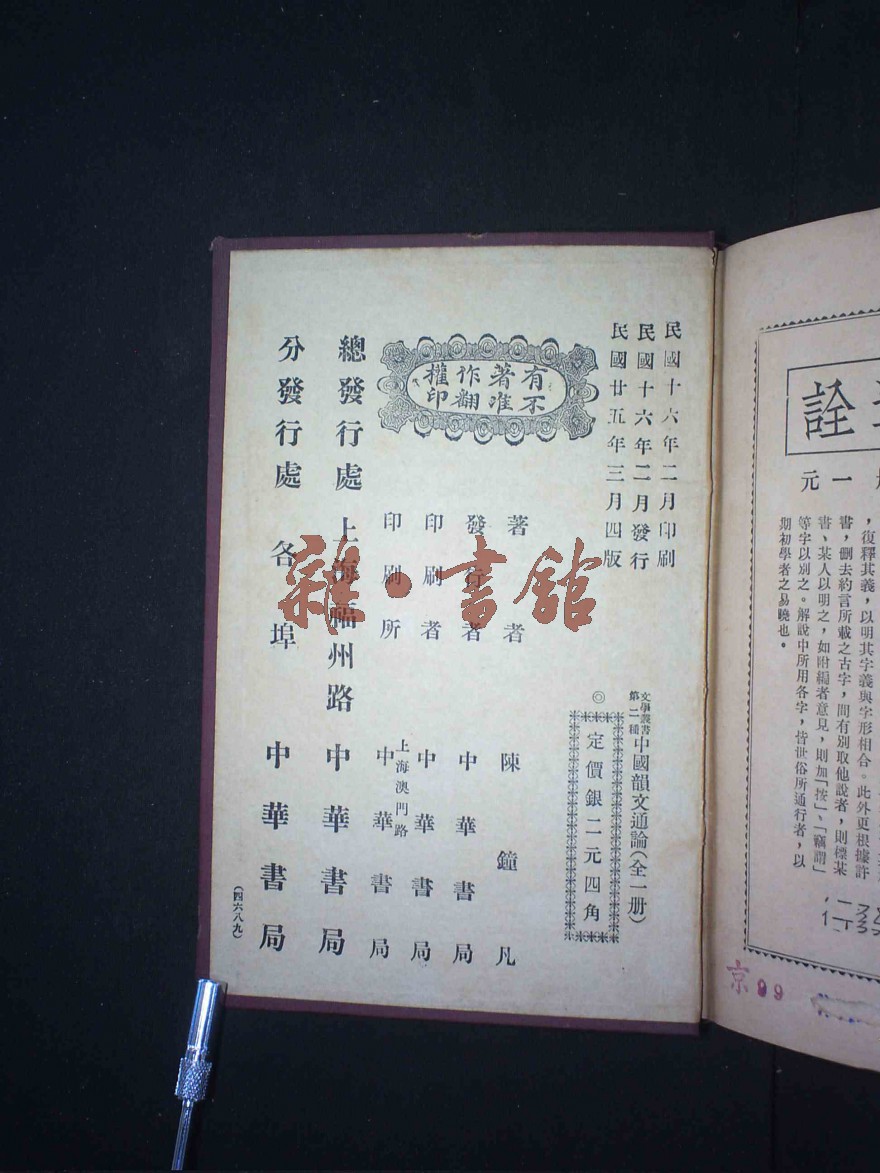 民國十六年二月印刷
民國十六年二月發行
民國廿五年三月四版
文學叢書
第二種
中國韻文通論(全一册)
◎定價銀二元四角
有著作權
不准翻印
著者 陳鐘凡
發行者 中華書局
印刷者 中華書局
印刷所 上海澳門路 中華書局
總發行處 上海福州路 中華書局
分發行處 各埠 中華書局
(四六八九)
雜·書館
詮
一元
,復釋其義,以明其字義與字形相合。此外更根據許
書,删去約言所載之古字,間有別取他說者,則標某
書、某人以明之,如附編者意見,則加「按」、「竊謂」
等字以別之。解說中所用各字,皆世俗所通行者,以
期初學者之易曉也。
京99